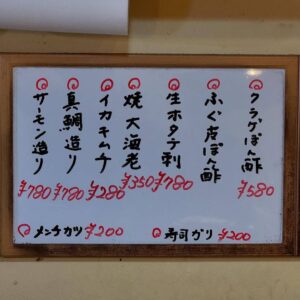 クラゲぽん酢 ¥580
ふぐ皮ぽん酢
生ホタテ刺 ¥780
焼大海老 ¥350
イカキムチ ¥280
真鯛造り ¥780
サーモン造り ¥780
メンチカツ ¥200
寿司ガリ ¥200